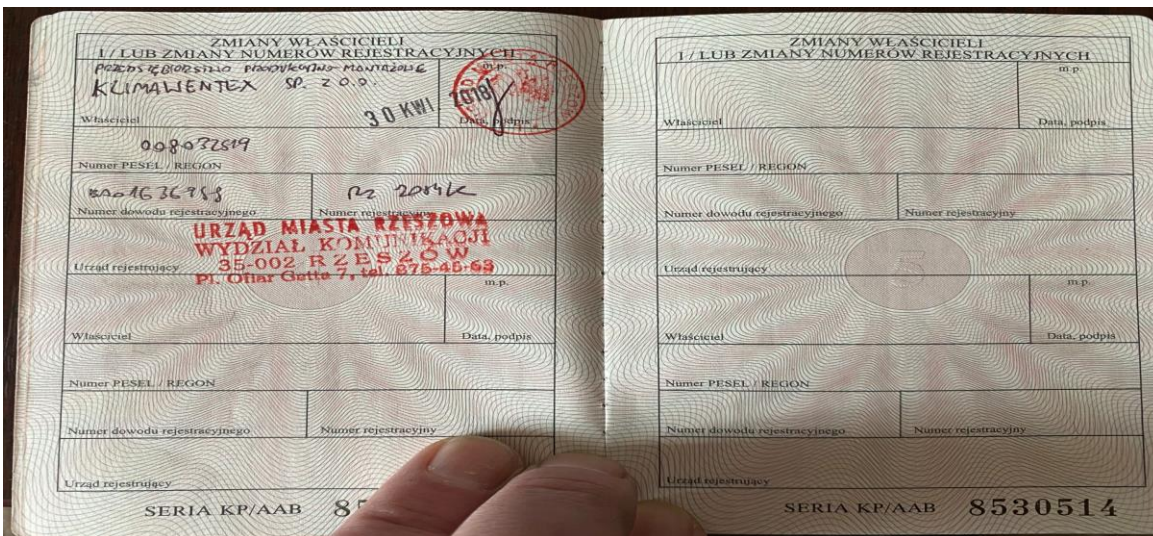 ZMIANY WŁAŚCICIELI
I / LUB ZMIANY NUMERÓW REJESTRACYJNYCH
PRZEDSIĘBIORSTWO PRODUKCYJNO MONTAŻOWE
KLIMAWENTEX SP. Z O.O.
m.p.
30 KWI. 2018
Właściciel
Data, podpis
008032519
Numer PESEL / REGON
RZ 2014K
Numer dowodu rejestracyjnego
Numer rejestracyjny
URZĄD MIASTA RZESZOWA
WYDZIAŁ KOMUNIKACJI
35-002 RZESZÓW
Pl. Ofiar Getta 7, tel. 875-45-63
Urząd rejestrujący
m.p.
Właściciel
Data, podpis
Numer PESEL / REGON
Numer dowodu rejestracyjnego
Numer rejestracyjny
Urząd rejestrujący
SERIA KP/AAB 85
ZMIANY WŁAŚCICIELI
I / LUB ZMIANY NUMERÓW REJESTRACYJNYCH
m.p.
Właściciel
Data, podpis
Numer PESEL / REGON
Numer dowodu rejestracyjnego
Numer rejestracyjny
Urząd rejestrujący
5
m.p.
Właściciel
Data, podpis
Numer PESEL / REGON
Numer dowodu rejestracyjnego
Numer rejestracyjny
Urząd rejestrujący
SERIA KP/AAB 8530514